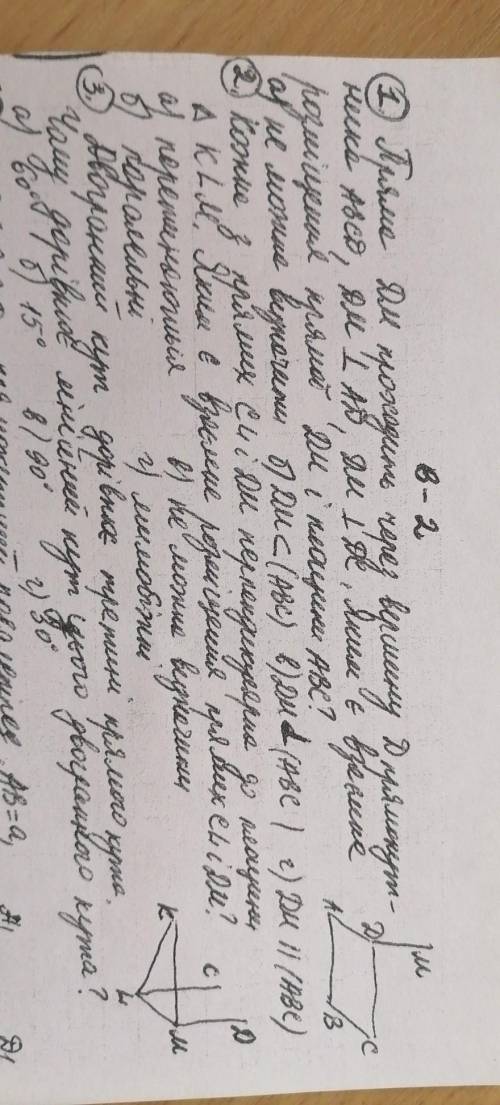 В-2
① Пряма DM проходить через вершину D прямокут-
ника ABCD, DM ⊥ AD, DM ⊥ DC. Яким є взаємне
розміщення прямої DM і площини ABC?
а) не можна визначити б) DM ⊂ (ABC) в) DM ⊥ (ABC) г) DM || (ABC)
M
D
C
A
B
② Кожна з прямих CL і DM перпендикулярна до площини
Δ KLM. Яким є взаємне розміщення прямих CL і DM?
а) перетинаються в) не можна визначити
б) паралельні г) мимобіжні
C
D
K
L
M
③. Двогранний кут дорівнює третині прямого кута.
Чому дорівнює лінійний кут цього двогранного кута?
а) 60° б) 15° в) 90° г) 30°
AB = a,
A1
D1